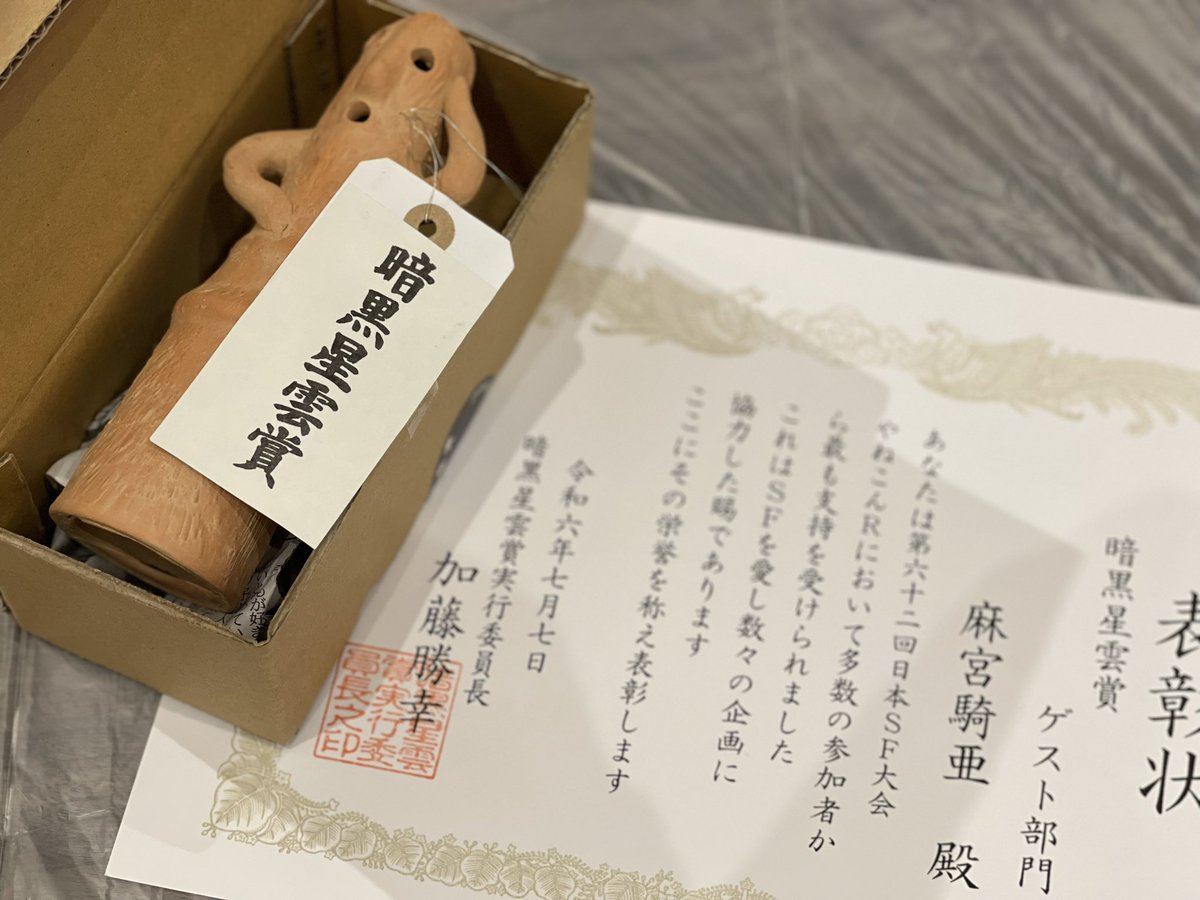 暗黒星雲賞
表彰状
暗黒星雲賞
ゲスト部門
麻宮騎亜 殿
あなたは第六十二回日本SF大会
やねこんRにおいて多数の参加者か
ら最も支持を受けられました
これはSFを愛し数々の企画に
協力した賜であります
ここにその栄誉を称え表彰します
令和六年七月七日
暗黒星雲賞実行委員長
加藤勝幸